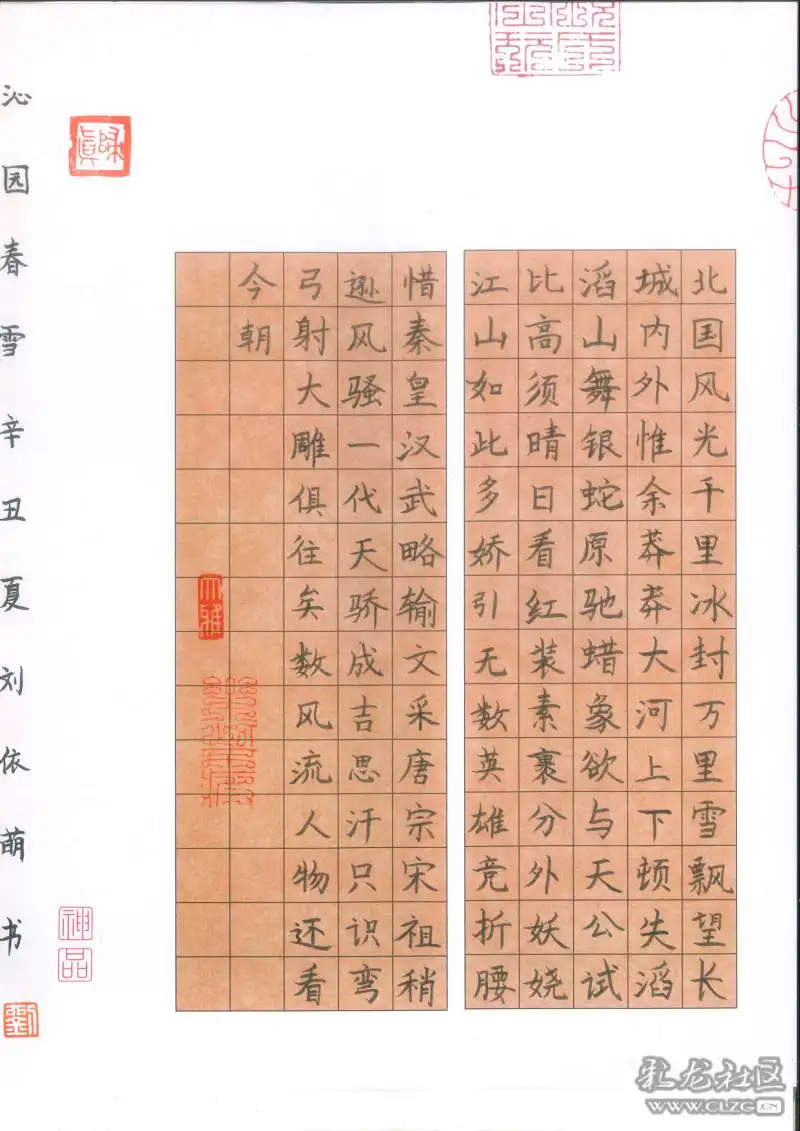 北国风光千里冰封万里雪飘望长
城内外惟余莽莽大河上下顿失滔
滔山舞银蛇原驰蜡象欲与天公试
比高须晴日看红装素裹分外妖娆
江山如此多娇引无数英雄竞折腰
惜秦皇汉武略输文采唐宗宋祖稍
逊风骚一代天骄成吉思汗只识弯
弓射大雕俱往矣数风流人物还看
今朝
大雅
歸眞
神品
沁园春雪辛丑夏刘依萌书
劉
彩龙社区
www.CLZG.CN